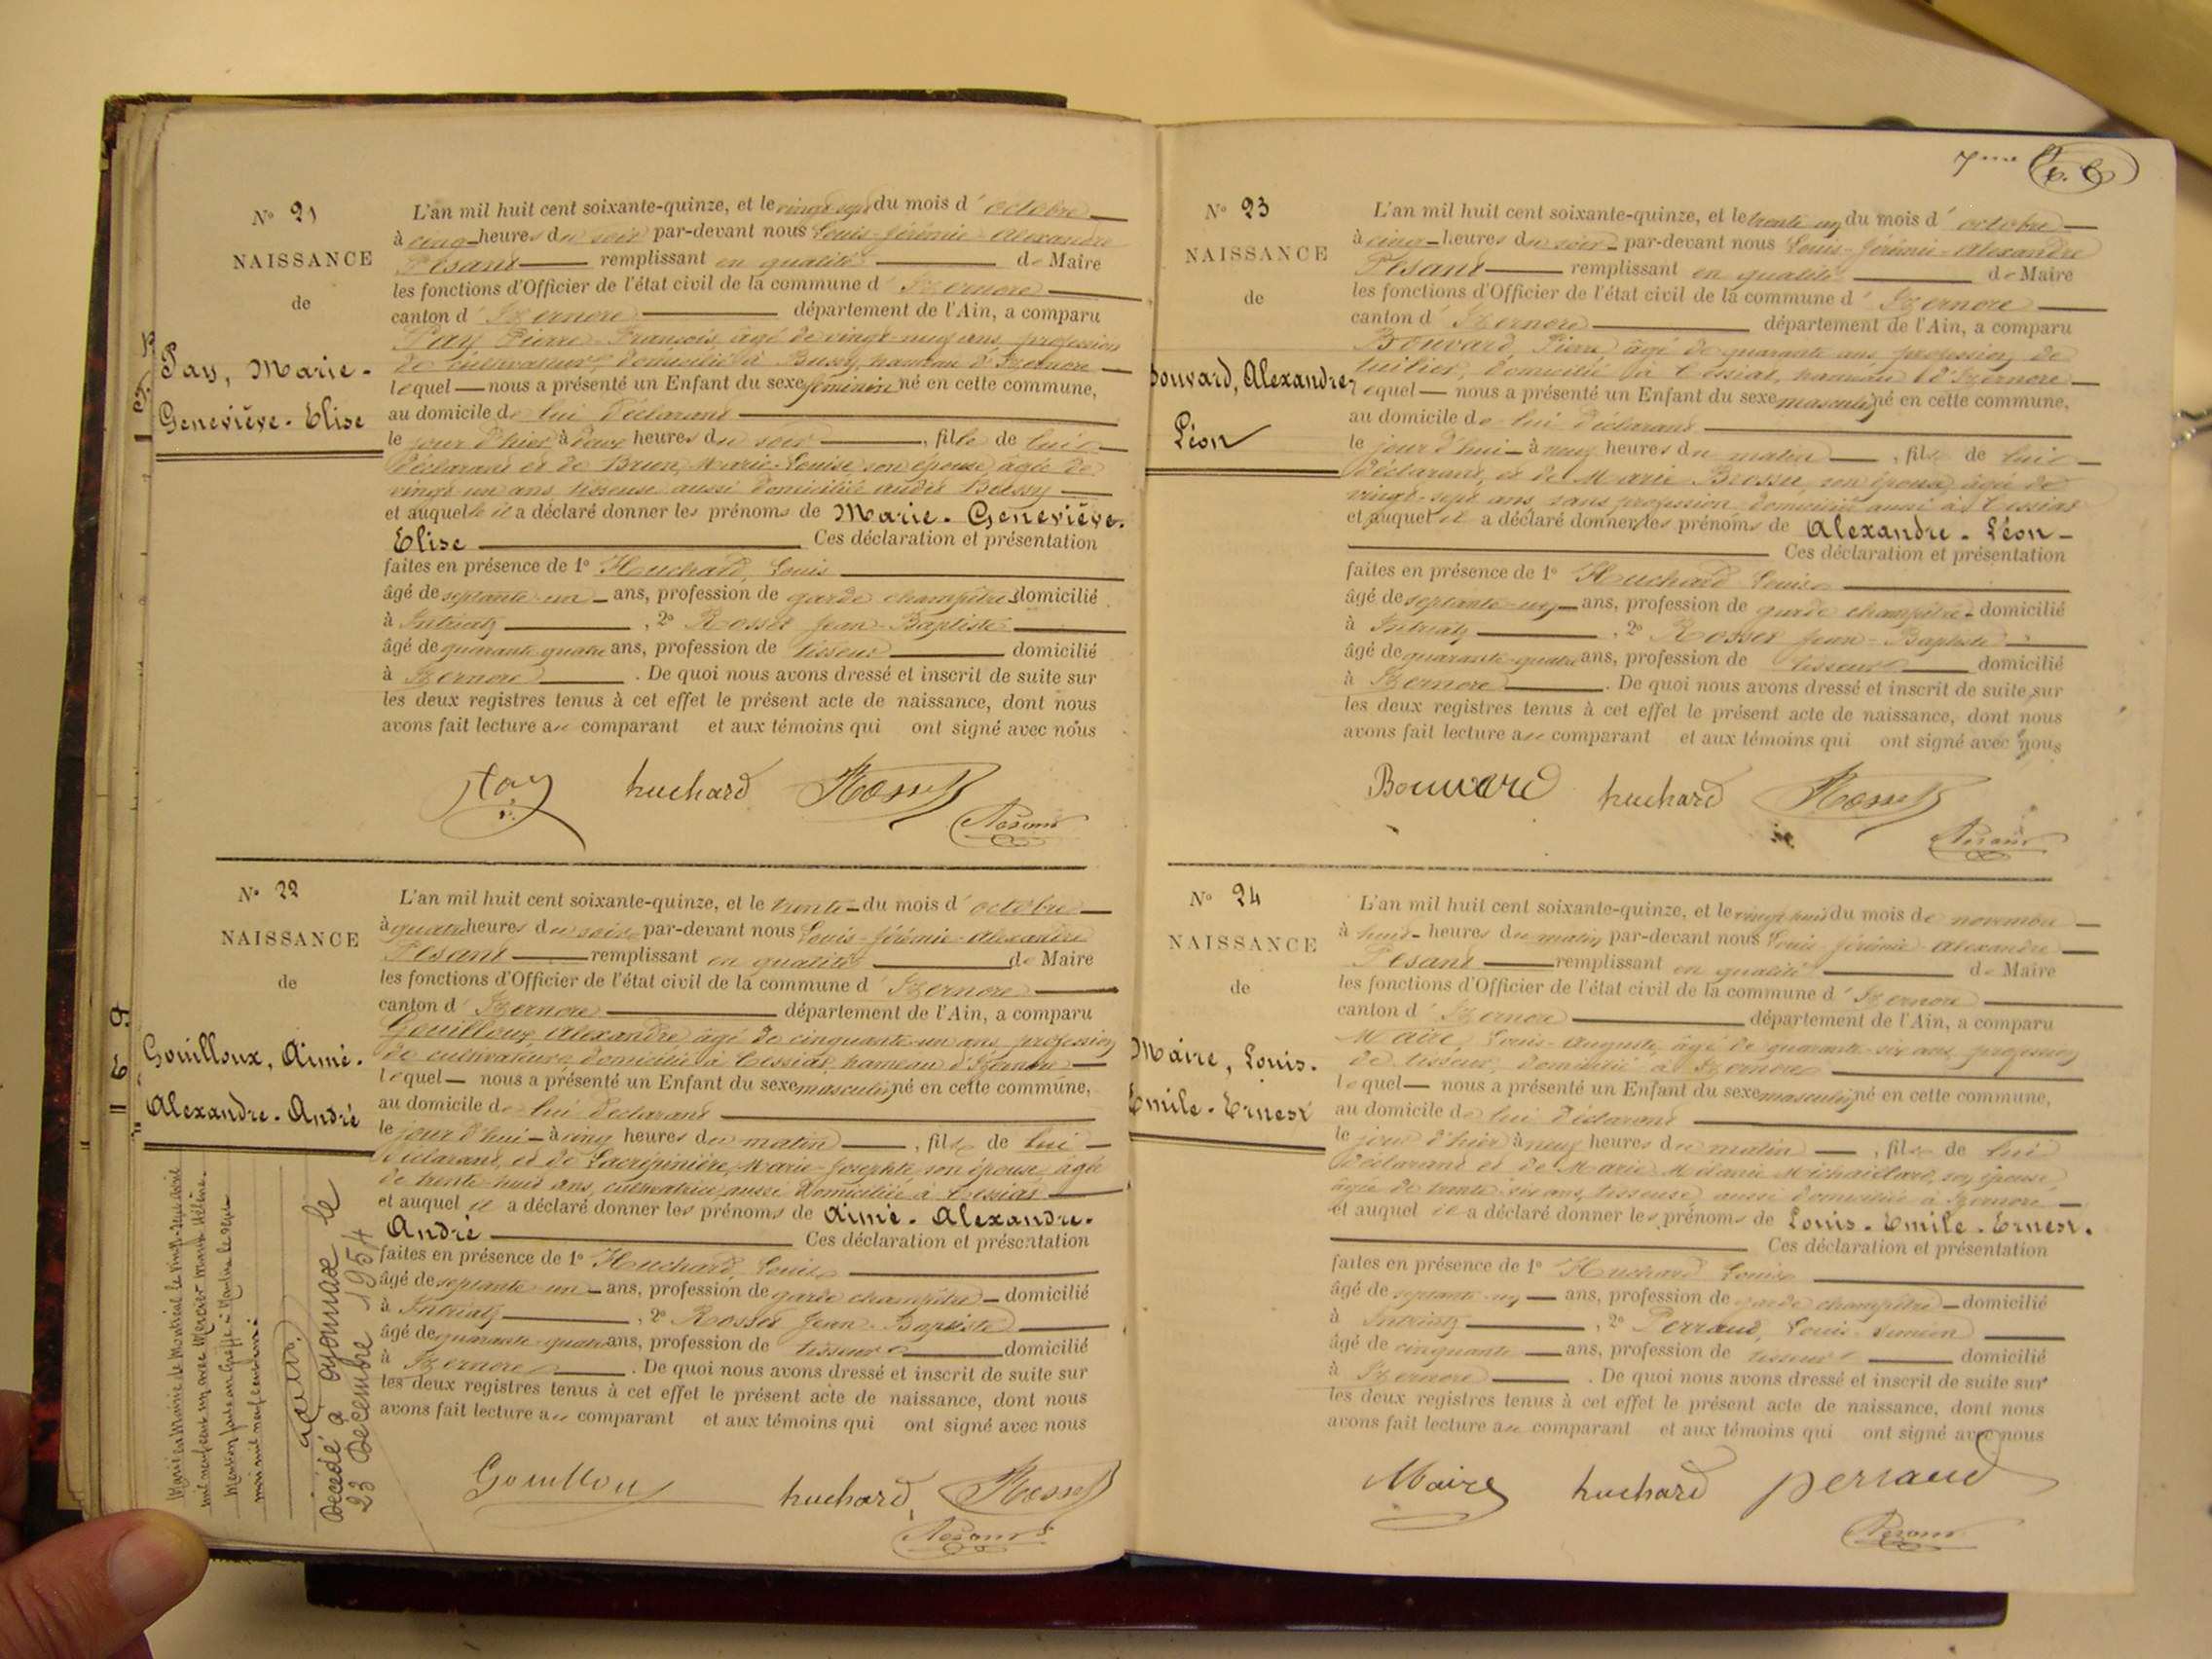 N° 21
NAISSANCE
de
Pay, Marie-
Geneviève-Elise
L'an mil huit cent soixante-quinze, et le vingt sept du mois d'octobre
à cinq heures du soir par-devant nous Louis-Jérémie-Alexandre
Pesant remplissant en qualité de Maire
les fonctions d'Officier de l'état civil de la commune d'Izernore
canton d'Izernore département de l'Ain, a comparu
Pay Pierre-François, âgé de vingt-neuf ans, profession
de cultivateur, domicilié à Bussy, hameau d'Izernore
lequel nous a présenté un Enfant du sexe féminin né en cette commune,
au domicile de lui déclarant
le jour d'hier à deux heures du soir, fille de lui
déclarant et de Brun, Marie-Louise son épouse, âgée de
vingt un ans tisseuse aussi domiciliée audit Bussy
et auquelle il a déclaré donner les prénoms de Marie-Geneviève-
Elise Ces déclaration et présentation
faites en présence de 1° Huchard, Louis
âgé de septante-un ans, profession de garde champêtre domicilié
à Intriatz, 2° Rosset Jean-Baptiste
âgé de quarante-quatre ans, profession de tisseur domicilié
à Izernore. De quoi nous avons dressé et inscrit de suite sur
les deux registres tenus à cet effet le présent acte de naissance, dont nous
avons fait lecture au comparant et aux témoins qui ont signé avec nous
Pay huchard Rosset
Pesant
N° 22
NAISSANCE
de
Gouilloux, Aimé-
Alexandre-André
L'an mil huit cent soixante-quinze, et le trente du mois d'octobre
à quatre heures du soir par-devant nous Louis-Jérémie-Alexandre
Pesant remplissant en qualité de Maire
les fonctions d'Officier de l'état civil de la commune d'Izernore
canton d'Izernore département de l'Ain, a comparu
Gouilloux, Alexandre, âgé de cinquante-un ans, profession
de cultivateur, domicilié à Cessiat, hameau d'Izernore
lequel nous a présenté un Enfant du sexe masculin né en cette commune,
au domicile de lui déclarant
le jour d'hui à cinq heures du matin, fils de lui
déclarant, et de Lacrépinière, Marie-Josephte, son épouse, âgée
de trente-huit ans, cultivatrice, aussi domiciliée à Cessiat
et auquel il a déclaré donner les prénoms de Aimé-Alexandre-
André Ces déclaration et présentation
faites en présence de 1° Huchard, Louis
âgé de septante-un ans, profession de garde champêtre domicilié
à Intriatz, 2° Rosset Jean-Baptiste
âgé de quarante-quatre ans, profession de tisseur domicilié
à Izernore. De quoi nous avons dressé et inscrit de suite sur
les deux registres tenus à cet effet le présent acte de naissance, dont nous
avons fait lecture au comparant et aux témoins qui ont signé avec nous
Gouilloux huchard Rosset
Pesant
Décédé à Oyonnax le
23 Décembre 1954
7me
N° 23
NAISSANCE
de
Bouvard, Alexandre-
Léon
L'an mil huit cent soixante-quinze, et le trente un du mois d'octobre
à cinq heures du soir par-devant nous Louis-Jérémie-Alexandre
Pesant remplissant en qualité de Maire
les fonctions d'Officier de l'état civil de la commune d'Izernore
canton d'Izernore département de l'Ain, a comparu
Bouvard, Pierre, âgé de quarante ans, profession de
tuilier, domicilié à Cessiat, hameau d'Izernore
lequel nous a présenté un Enfant du sexe masculin né en cette commune,
au domicile de lui déclarant
le jour d'hui à neuf heures du matin, fils de lui
déclarant, et de Marie Brosse, son épouse, âgée de
vingt-sept ans, sans profession, domiciliée aussi à Cessiat
et auquel il a déclaré donner les prénoms de Alexandre-Léon-
Ces déclaration et présentation
faites en présence de 1° Huchard Louis
âgé de septante-un ans, profession de garde champêtre domicilié
à Intriatz, 2° Rosset Jean-Baptiste
âgé de quarante-quatre ans, profession de tisseur domicilié
à Izernore. De quoi nous avons dressé et inscrit de suite sur
les deux registres tenus à cet effet le présent acte de naissance, dont nous
avons fait lecture au comparant et aux témoins qui ont signé avec nous
Bouvard huchard Rosset
Pesant
N° 24
NAISSANCE
de
Maire, Louis-
Emile-Ernest
L'an mil huit cent soixante-quinze, et le vingt huit du mois de novembre
à huit heures du matin par-devant nous Louis-Jérémie-Alexandre
Pesant remplissant en qualité de Maire
les fonctions d'Officier de l'état civil de la commune d'Izernore
canton d'Izernore département de l'Ain, a comparu
Maire, Louis-Auguste, âgé de quarante-six ans, profession
de tisseur, domicilié à Izernore
lequel nous a présenté un Enfant du sexe masculin né en cette commune,
au domicile de lui déclarant
le jour d'hier à neuf heures du matin, fils de lui
déclarant et de Marie Mélanie Michaillard, son épouse
âgée de trente six ans, tisseuse, aussi domiciliée à Izernore
et auquel il a déclaré donner les prénoms de Louis-Emile-Ernest.
Ces déclaration et présentation
faites en présence de 1° Huchard Louis
âgé de septante-un ans, profession de garde champêtre domicilié
à Intriatz, 2° Perraud, Louis
âgé de cinquante ans, profession de tisseur domicilié
à Izernore. De quoi nous avons dressé et inscrit de suite sur
les deux registres tenus à cet effet le présent acte de naissance, dont nous
avons fait lecture au comparant et aux témoins qui ont signé avec nous
Maire huchard perraud
Pesant